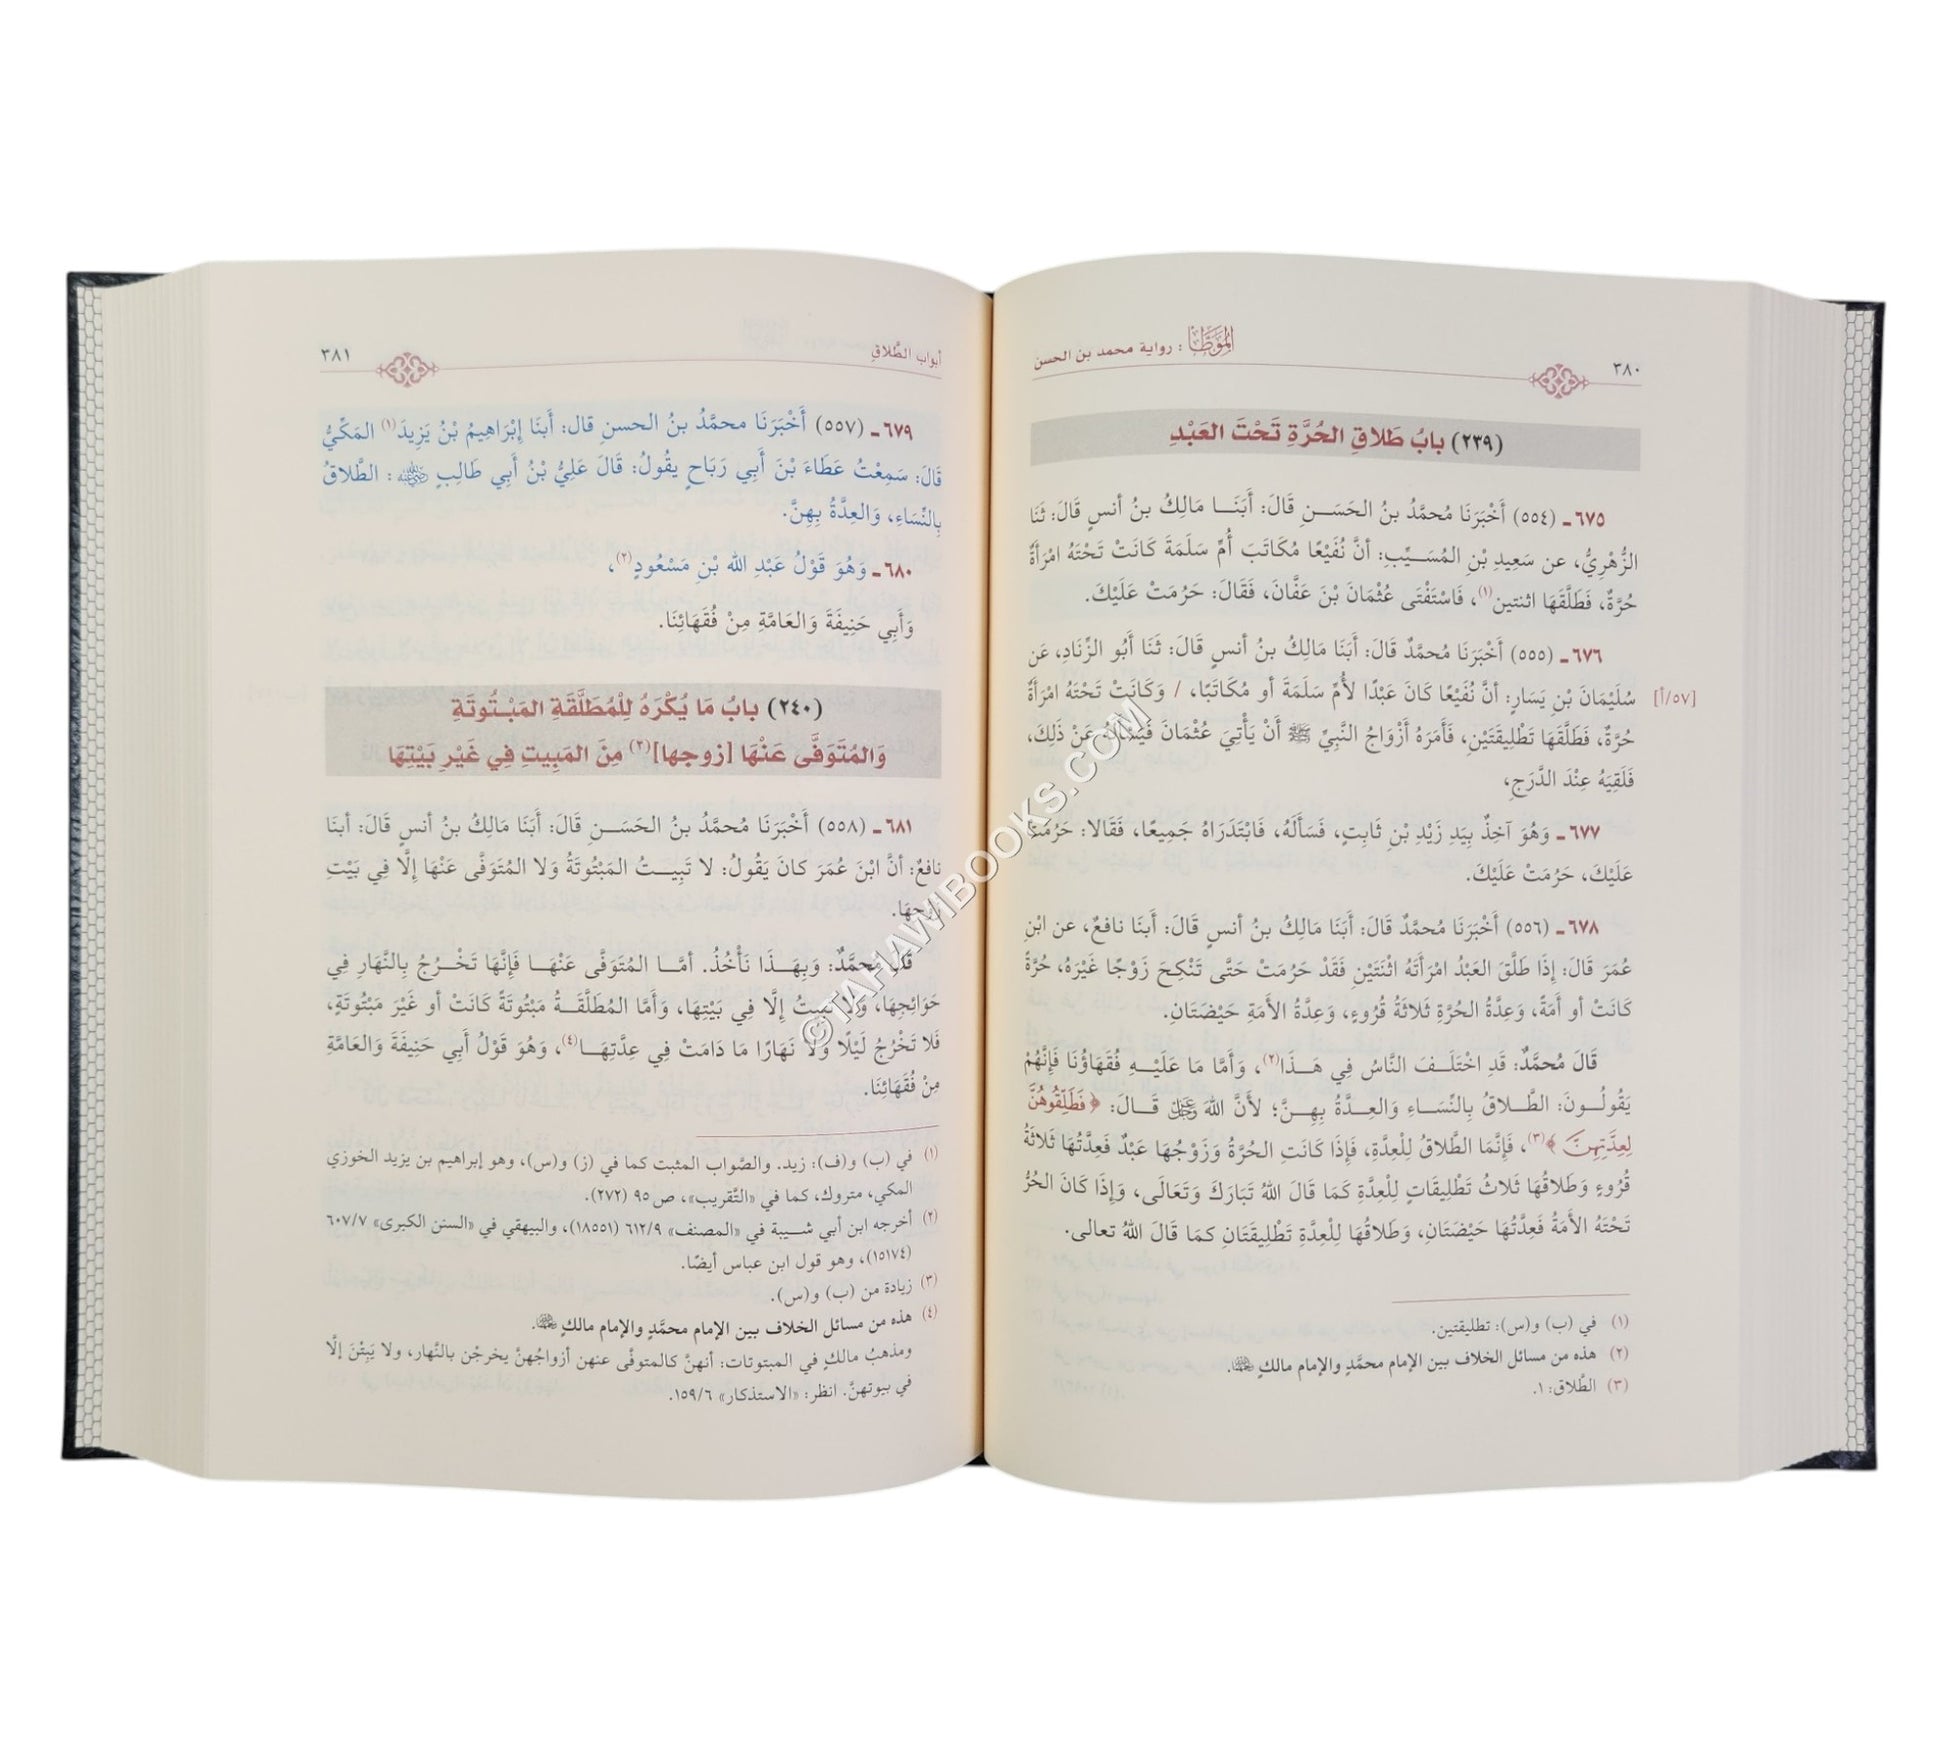 ٣٨٠
الموطأ : رواية محمد بن الحسن
(٢٣٩) بابُ طَلاقِ الحُرَّةِ تَحْتَ العَبْدِ
٦٧٥ـ (٥٥٤) أَخْبَرَنَا مُحمَّدُ بنُ الحَسَـــنِ قَالَ: أَبَنَــا مَالِكُ بنُ أنسٍ قَالَ: ثَنَا
الزُّهْرِيُّ، عن سَعِيدِ بْنِ المُسَيِّبِ: أنَّ نُفَيْعًا مُكَاتَبَ أُمِّ سَلَمَةَ كَانَتْ تَحْتَهُ امْرَأَةٌ
حُرَّةٌ، فَطَلَّقَهَا اثنتين(١)، فَاسْتَفْتَى عُثْمَانَ بْنَ عَفَّانَ، فَقَالَ: حَرُمَتْ عَلَيْكَ.
٦٧٦ـ (٥٥٥) أَخْبَرَنَا مُحمَّدٌ قَالَ: أَبَنَا مَالِكُ بنُ أنسٍ قَالَ: ثَنَا أَبُو الزِّنَادِ، عَن
سُلَيْمَانَ بْنِ يَسَارٍ: أنَّ نُفَيْعًا كَانَ عَبْدًا لأُمِّ سَلَمَةَ أو مُكَاتَبًا، / وَكَانَتْ تَحْتَهُ امْرَأَةٌ
[٥٧/أ]
حُرَّةٌ، فَطَلَّقَهَا تَطْلِيقَتَيْنِ، فَأَمَرَهُ أَزْوَاجُ النَّبِيِّ ﷺ أَنْ يَأْتِيَ عُثْمَانَ فَيَسْأَلَهُ عَنْ ذَلِكَ،
فَلَقِيَهُ عِنْدَ الدَّرَجِ،
٦٧٧ـ وَهُوَ آخِذٌ بِيَدِ زَيْدِ بْنِ ثَابِتٍ، فَسَأَلَهُ، فَابْتَدَرَاهُ جَمِيعًا، فَقَالا: حَرُمَتْ
عَلَيْكَ، حَرُمَتْ عَلَيْكَ.
٦٧٨ـ (٥٥٦) أَخْبَرَنَا مُحمَّدٌ قَالَ: أَبَنَا مَالِكُ بنُ أنسٍ قَالَ: أَبَنَا نافعٌ، عن ابْنِ
عُمَرَ قَالَ: إِذَا طَلَّقَ العَبْدُ امْرَأَتَهُ اثْنَتَيْنِ فَقَدْ حَرُمَتْ حَتَّى تَنْكِحَ زَوْجًا غَيْرَهُ، حُرَّةً
كَانَتْ أو أَمَةً، وَعِدَّةُ الحُرَّةِ ثَلاثَةُ قُرُوءٍ، وَعِدَّةُ الأَمَةِ حَيْضَتَانِ.
قَالَ مُحمَّدٌ: قَدِ اخْتَلَــفَ النَّاسُ فِي هَــذَا(٢)، وَأَمَّا مَا عَلَيْــهِ فُقَهَاؤُنَا فَإِنَّهُمْ
يَقُولُــونَ: الطَّــلاقُ بِالنِّسَــاءِ وَالعِدَّةُ بِهِــنَّ؛ لأَنَّ اللهَ عَزَّ وَجَلَّ قَــالَ: ﴿فَطَلِّقُوهُنَّ
لِعِدَّتِهِنَّ﴾(٣)، فَإِنَّمَا الطَّلاقُ لِلْعِدَّةِ، فَإِذَا كَانَتِ الحُرَّةُ وَزَوْجُهَا عَبْدٌ فَعِدَّتُهَا ثَلاثَةُ
قُرُوءٍ وَطَلاقُهَا ثَلاثُ تَطْلِيقَاتٍ لِلْعِدَّةِ كَمَا قَالَ اللهُ تَبَارَكَ وَتَعَالَى، وَإِذَا كَانَ الحُرُّ
تَحْتَهُ الأَمَةُ فَعِدَّتُهَا حَيْضَتَانِ، وَطَلاقُهَا لِلْعِدَّةِ تَطْلِيقَتَانِ كمَا قَالَ اللهُ تعالى.
(١) في (ب) و(س): تطليقتين.
(٢) هذه من مسائل الخلاف بين الإمام محمَّدٍ والإمام مالكٍ
(٣) الطَّلاق: ١.
أبواب الطَّلاقِ
٣٨١
٦٧٩ـ (٥٥٧) أَخْبَرَنَا محمَّدُ بنُ الحسنِ قال: أَبنَا إِبْرَاهِيمُ بْنُ يَزِيدَ(١) المَكِّيُّ
قَالَ: سَمِعْتُ عَطَاءَ بْنَ أَبِي رَبَاحٍ يقُولُ: قَالَ عَلِيُّ بْنُ أَبِي طَالِبٍ : الطَّلاقُ
بِالنِّسَاءِ، وَالعِدَّةُ بِهِنَّ.
٦٨٠ـ وَهُوَ قَوْلُ عَبْدِ الله بْنِ مَسْعُودٍ(٢)،
وَأَبِي حَنِيفَةَ وَالعَامَّةِ مِنْ فُقَهَائِنَا.
(٢٤٠) بابُ مَا يُكْرَهُ لِلْمُطَلَّقَةِ المَبْتُوتَةِ
وَالمُتَوَفَّى عَنْهَا [زوجها](٣) مِنَ المَبِيتِ فِي غَيْرِ بَيْتِهَا
٦٨١ـ (٥٥٨) أَخْبَرَنَا مُحمَّدُ بنُ الحَسَــنِ قَالَ: أَبَنَا مَالِكُ بنُ أنسٍ قَالَ: أبنَا
نافعٌ: أنَّ ابْنَ عُمَرَ كانَ يَقُولُ: لا تَبِيــتُ المَبْتُوتَةُ وَلا المُتَوَفَّى عَنْهَا إِلَّا فِي بَيْتِ
زَوْجِهَا.
قَالَ مُحمَّدٌ: وَبِهَــذَا نَأْخُذُ. أمَّــا المُتَوَفَّى عَنْهَــا فَإِنَّهَا تَخْــرُجُ بِالنَّهَارِ فِي
حَوَائِجِهَا، وَلا تَبِيتُ إِلَّا فِي بَيْتِهَا، وَأَمَّا المُطَلَّقَــةُ مَبْتُوتَةً كَانَتْ أو غَيْرَ مَبْتُوتَةٍ،
فَلا تَخْرُجُ لَيْلًا وَلا نَهَارًا مَا دَامَتْ فِي عِدَّتِهَــا(٤)، وَهُوَ قَوْلُ أَبِي حَنِيفَةَ وَالعَامَّةِ
مِنْ فُقَهَائِنَا.
(١) في (ب) و(ف): زيد. والصَّواب المثبت كما في (ز) و(س)، وهو إبراهيم بن يزيد الخوزي
المكي، متروك، كما في «التَّقريب»، ص ٩٥ (٢٧٢).
(٢) أخرجه ابن أبي شــيبة في «المصنف» ٦١٢/٩ (١٨٥٥١)، والبيهقي في «السنن الكبرى» ٦٠٧/٧
(١٥١٧٤)، وهو قول ابن عباس أيضًا.
(٣) زيادة من (ب) و(س).
(٤) هذه من مسائل الخلاف بين الإمام محمَّدٍ والإمام مالكٍ
ومذهبُ مالكٍ في المبتوتات: أنهنَّ كالمتوفَّى عنهن أزواجُهنَّ يخرجْن بالنَّهار، ولا يَبِتْنَ إلَّا
في بيوتهنَّ. انظر: «الاستذكار» ١٥٩/٦.
©TAHAWIBOOKS.COM